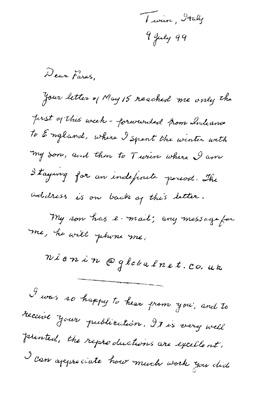 Turin, Italy
9 July 99
Dear Fares,
Your letter of May 15 reached me only the
first of this week - forwarded from Indiana
to England, where I spent the winter with
my son, and then to Turin where I am
staying for an indefinite period. The
address is on back of this letter.
My son has e-mail; any message for
me, he will phone me.
nicnin@globalnet.co.uk
I was so happy to hear from you, and to
receive your publication. It is very well
printed, the reproductions are excellent.
I can appreciate how much work you did